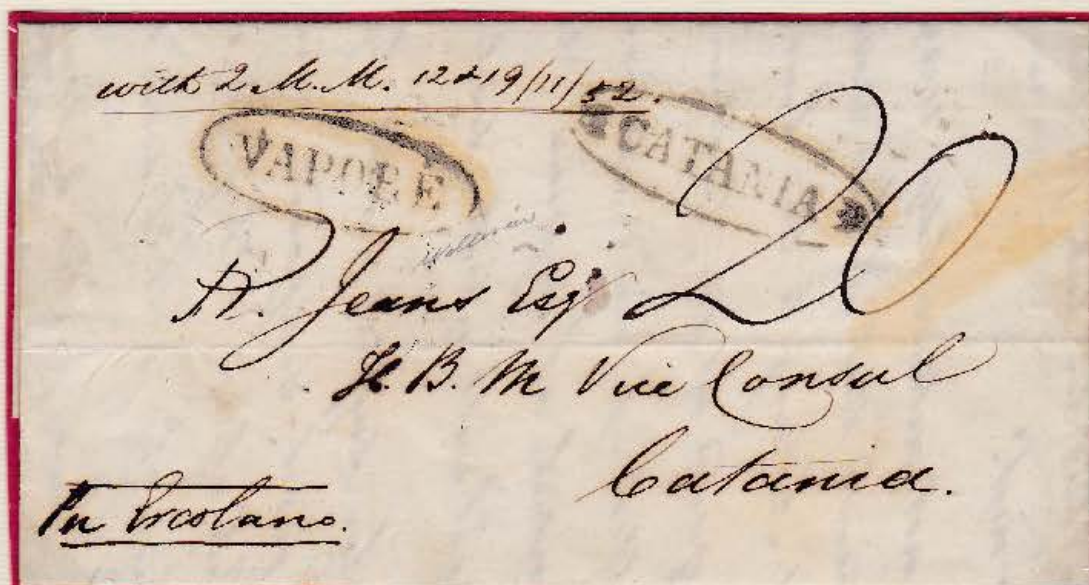 with 2 M. M. 12 & 19/11/52.
VAPORE
CATANIA
20
A. Jeans Esqr
H. B. M Vice Consul
Catania.
Per Ercolano.